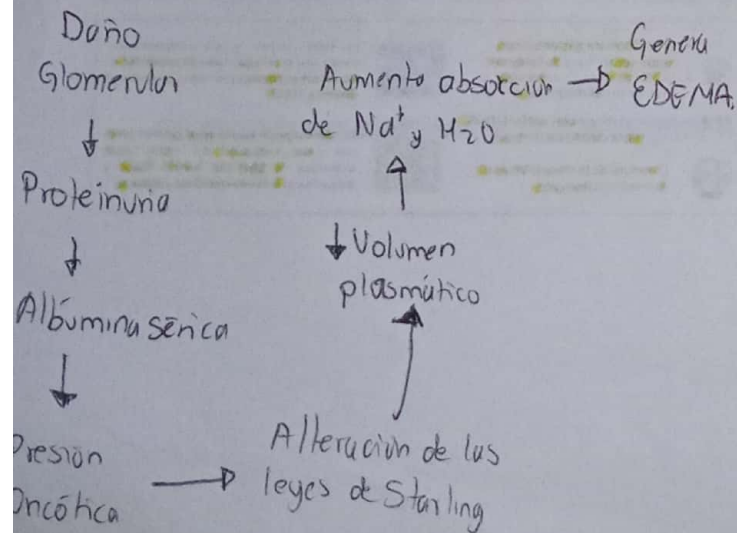 Daño
Glomerular
↓
Proteinuria
↓
Albúmina sérica
↓
Presión
Oncótica
→
Alteración de las
leyes de Starling
↑
↓ Volumen
plasmático
↑
Aumento absorción
de Na⁺ y H2O
→
Genera
EDEMA.